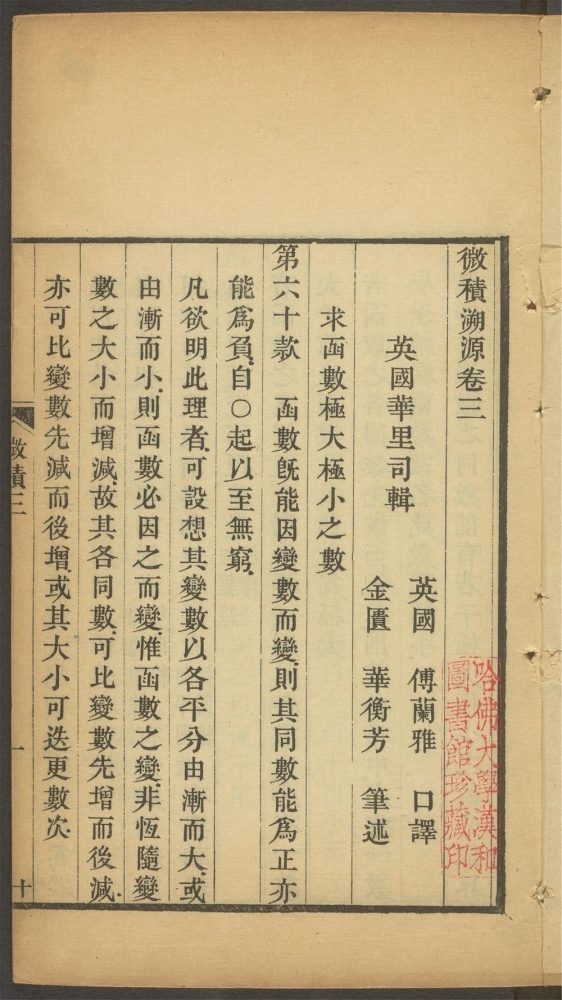 微積溯源卷三
英國華里司輯
英國 傅蘭雅 口譯
金匱 華衡芳 筆述
求函數極大極小之數
第六十款 函數旣能因變數而變則其同數能爲正亦
能爲負自〇起以至無窮
凡欲明此理者可設想其變數以各平分由漸而大或
由漸而小則函數必因之而變惟函數之變非恆隨變
數之大小而增減故其各同數可比變數先增而後減
亦可比變數先減而後增或其大小可迭更數次
微積三
一
十
哈佛大學漢和
圖書館珍藏印